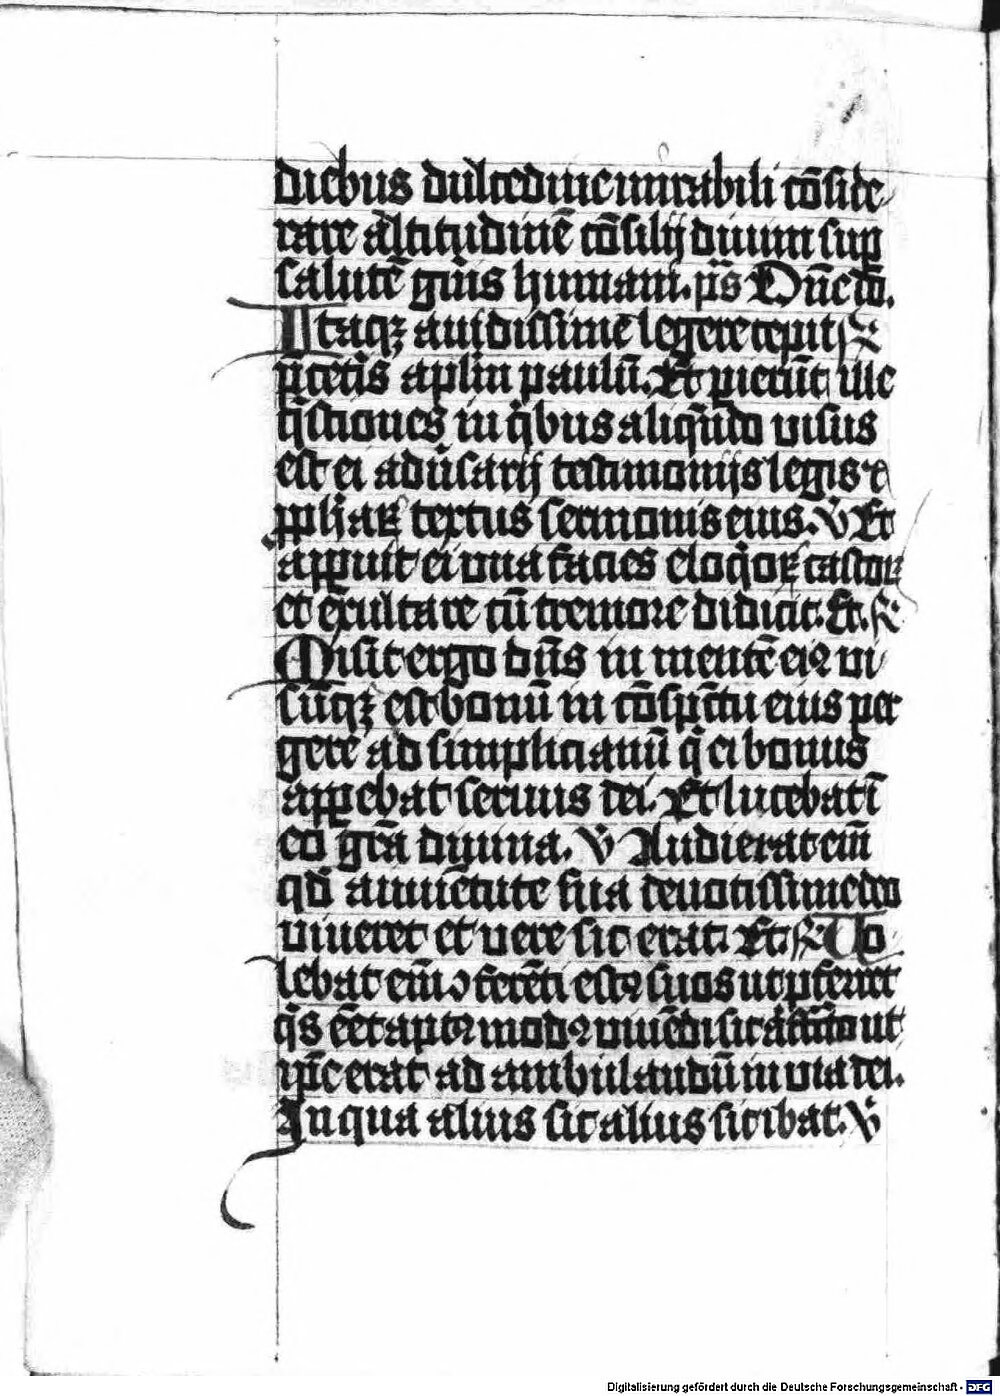 diebus dulcedine mirabili cōside
rare altitudinē cōsilij diuini sup
salutē gn̄is humani. ps̄ Dn̄e do.
Itaqꝫ auidissime legere cepit
p̄cet̄is aplm̄ paulū. Et pierūt ille
q̄stiones in q̄bus aliqn̄do visus
est ei adūsarij testimonijs legis ⁊
ꝓphaꝝ textus sermonis eius. V̄ Et
appuit ei vna facies eloq̄oꝝ castoꝝ
et exultare cū tremore didicit. Et. R̄
Misit ergo dn̄s in mentē eiꝰ vi
sūqꝫ est bonū in cōspc̄tu eius per
gere ad simplicianū q̄ ei bonus
appebat seruus dei. Et lucebat ī
eo gr̄a diuina. V̄ Audierat em̄
qd̄ a iuuētute sua deuotissime deo
viueret et vere sic erat. Et. R̄ Vo
lebat em̄ ꝯferēti estꝰ suos ut ꝓferret
q̄s eēt aptꝰ modꝰ viuēdi sic affc̄to ut
ip̄e erat ad ambulandū in via dei.
In qua alius sic alius sic ibat. V̄
Digitalisierung gefördert durch die Deutsche Forschungsgemeinschaft - DFG